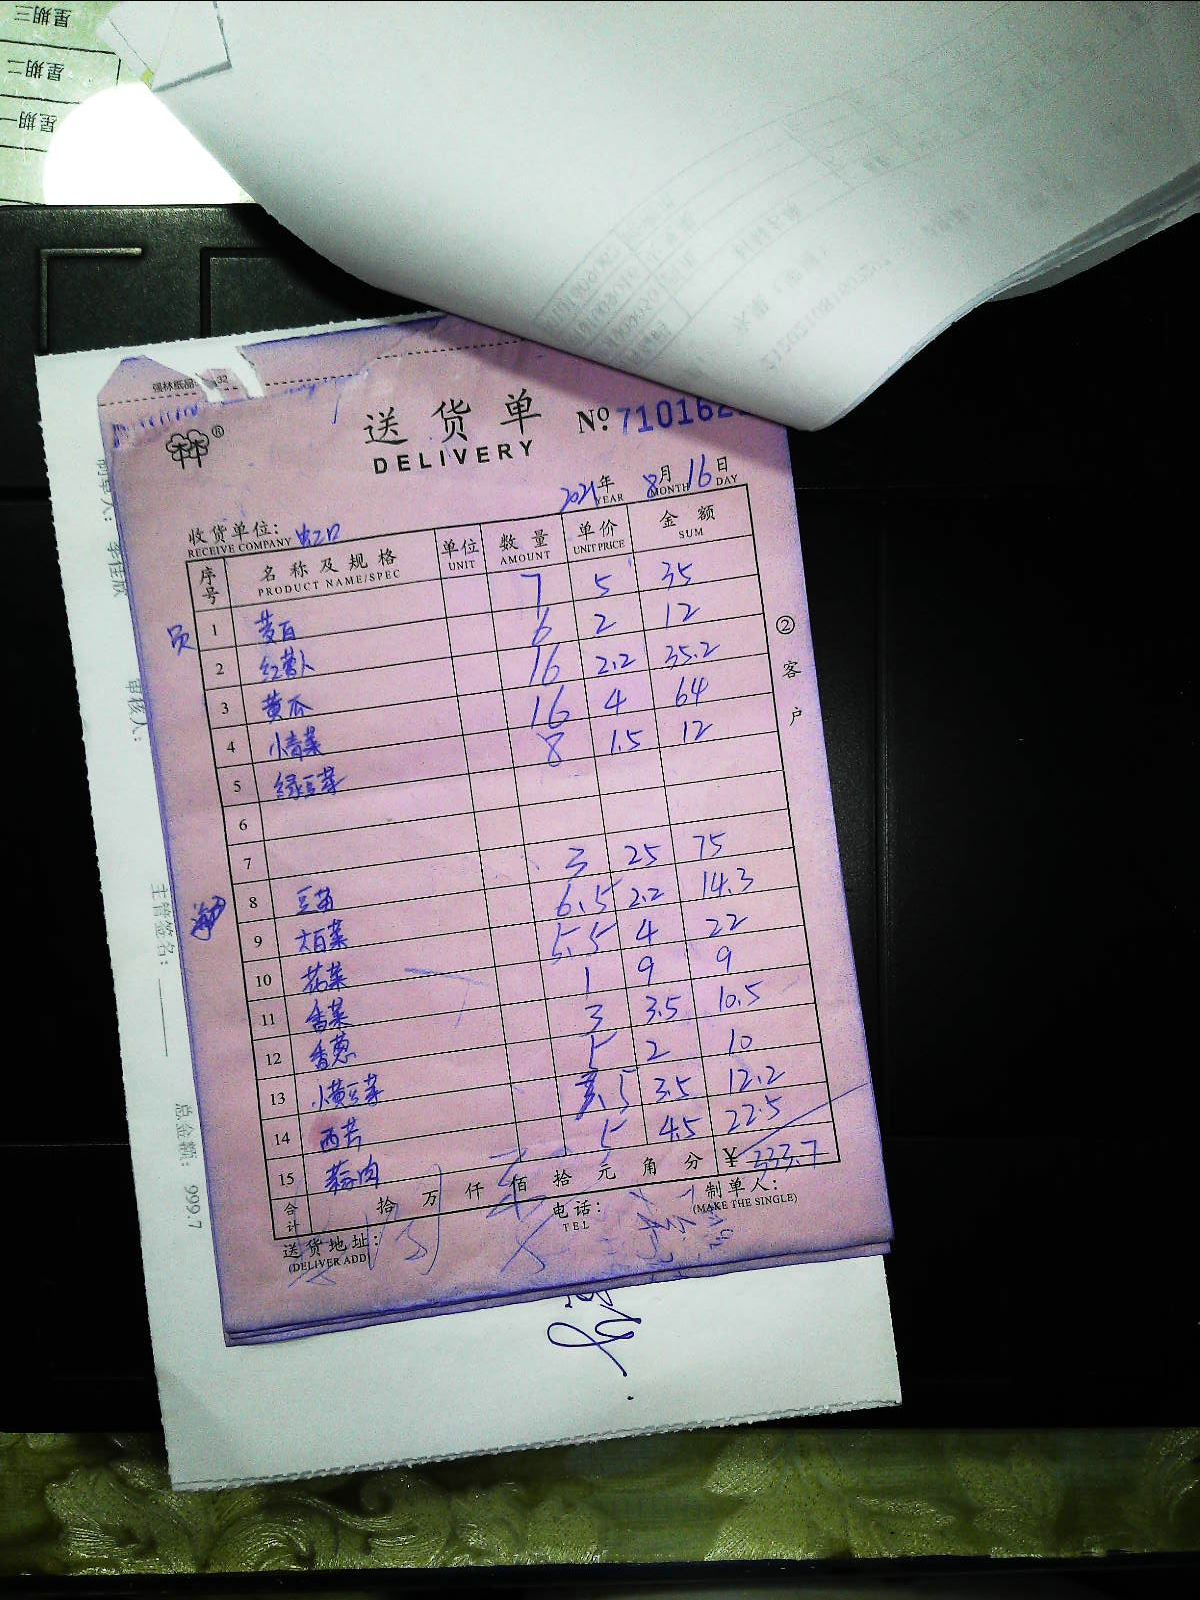 星期三
星期二
星期一
强林纸品
32
送货单
DELIVERY
№ 710162
2021年 8月16日
YEAR MONTH DAY
收货单位: 虹口
RECEIVE COMPANY
序号 名称及规格 单位 数量 单价 金额
PRODUCT NAME/SPEC UNIT AMOUNT UNIT PRICE SUM
员
1 茭白 7 5 35
2 红萝卜 6 2 12
3 黄瓜 16 2.2 35.2
4 小青菜 16 4 64
5 绿豆芽 8 1.5 12
6
7
8 豆苗 3 25 75
9 大白菜 6.5 2.2 14.3
10 花菜 5.5 4 22
11 香菜 1 9 9
12 香葱 3 3.5 10.5
13 小黄豆芽 5 2 10
14 西芹 3.5 3.5 12.2
15 5 4.5 22.5
合计 拾 万 仟 佰 拾 元 角 分 ¥ 333.7
②客户
送货地址:
(DELIVER ADD)
电话:
TEL
制单人:
(MAKE THE SINGLE)
审核人:
主管签名:
总金额: 999.7